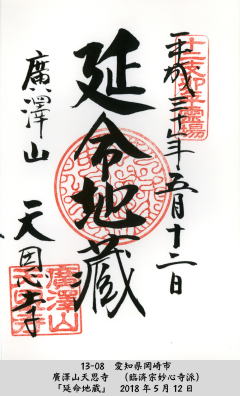 平成三十年五月十二日
延命地蔵
廣澤山 天恩寺
廣澤山
天恩寺
13-08 愛知県岡崎市
廣澤山天恩寺 (臨済宗妙心寺派)
「延命地蔵」 2018年5月12日